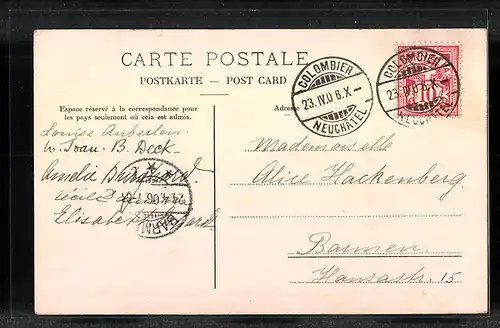 CARTE POSTALE
POSTKARTE – POST CARD
Espace réservé à la correspondance pour
les pays seulement où cela est admis.
Adresse
COLOMBIER
23.IV.0 6.X–
NEUCHATEL
COLOMBIER
23.IV.0 6.X–
NEUCHATEL
Louise Anberlen
B. Beck
Amélie
Elisabeth
BARM
Mademoiselle
Alice Hackenberg
Barmen
Hansastr. 15